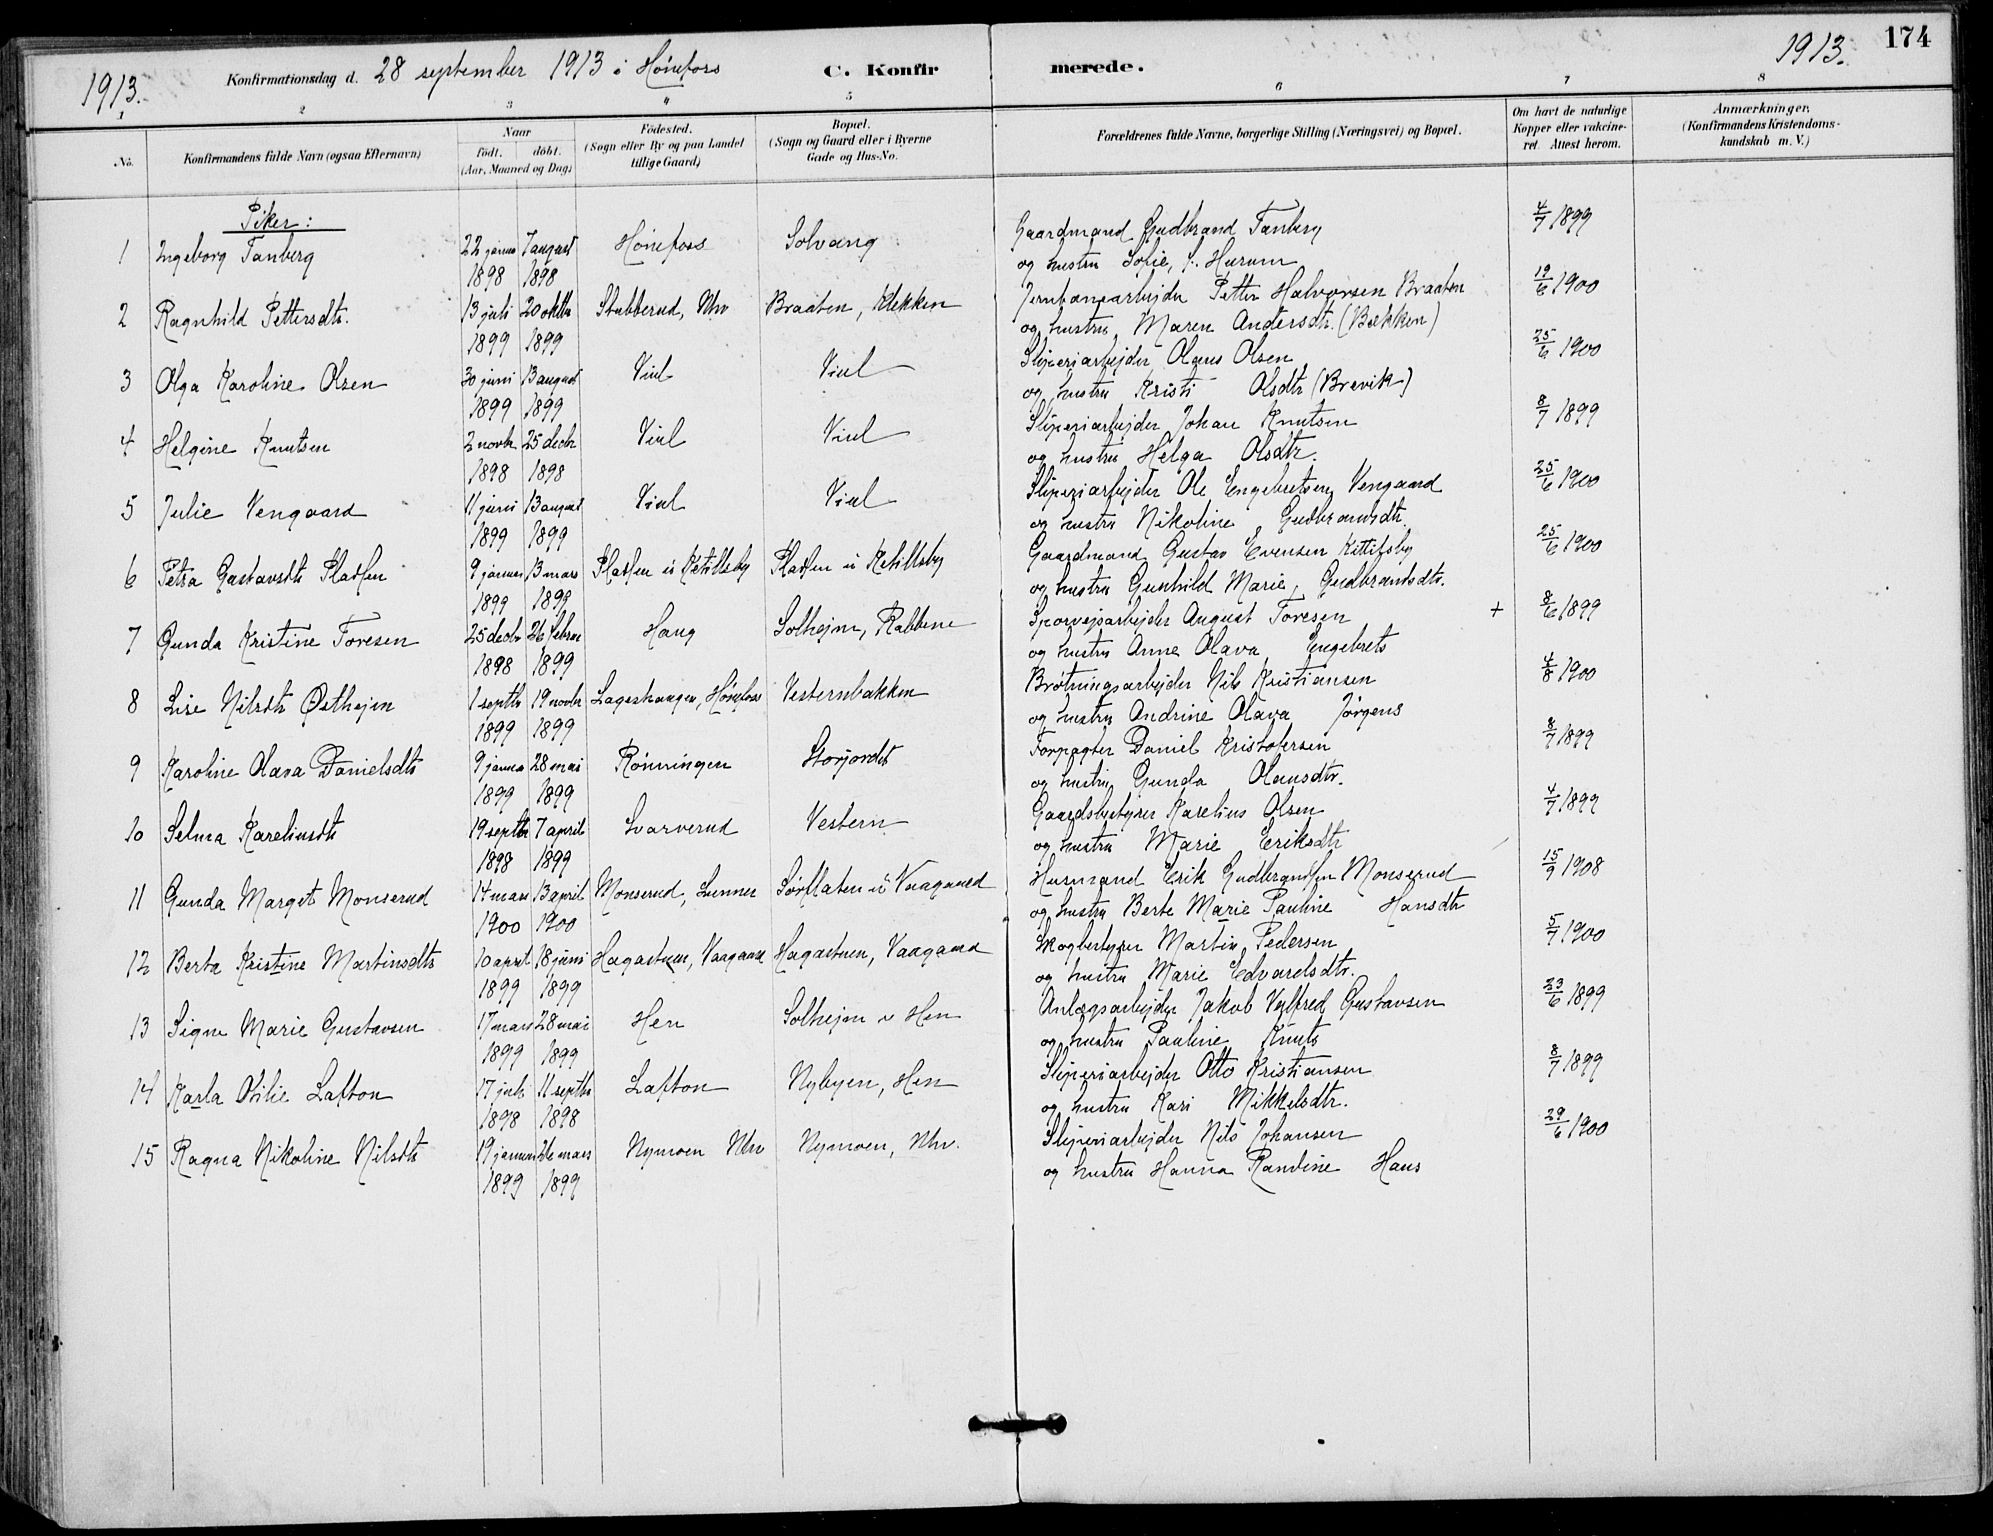 174
1913. Konfirmationsdag d. 28 september 1913 i Hønefoss C. Konfirmerede. 1913.
1 2 3 4 5 6 7 8
No. Konfirmandens fulde Navn (ogsaa Efternavn) Naar födt. döbt. (Aar, Maaned og Dag) Födested. (Sogn eller By og paa Landet tillige Gaard) Bopæl. (Sogn og Gaard eller i Byerne Gade og Hus-No. Forældrenes fulde Navne, borgerlige Stilling (Næringsvei) og Bopæl. Om havt de naturlige Kopper eller vakcineret. Attest herom. Anmærkninger. (Konfirmandens Kristendomskundskab m. V.)
Piker:
1 Ingeborg Tanberg 22 januar 7 august Hönefoss Solvang Gaardmand Gudbrand Tanberg 4/7 1899
1898 1898 og hustru Sofie, f. Hurum
2 Ragnhild Pettersdtr. 13 juli 20 oktbr Stubberud, Nhv Braaten, Klekken Jernbanearbejder Petter Halvorsen Braaten 19/6 1900
1899 1899 og hustru Maren Andersdtr. (Bækken)
3 Olga Karoline Olsen 30 juni 13 august Viul Viul Sliperiarbejder Olaus Olsen 25/6 1900
1899 1899 og hustru Kristi Olsdtr (Brevik)
4 Helgine Knutsen 2 novbr 25 decbr Viul Viul Sliperiarbejder Johan Knutsen 8/7 1899
1898 1898 og hustru Helga Olsdtr.
5 Julie Vengaard 11 juni 13 august Viul Viul Sliperiarbejder Ole Engebretsen Vengaard 25/6 1900
1899 1899 og hustru Nikoline Gudbrandsdtr.
6 Petra Gustavsdtr Pladsen 9 januar 13 mars Pladsen u Ketillsby Pladsen u Ketillsby Gaardmand Gustav Evensen Kittilsby 25/6 1900
1899 1899 og hustru Gunhild Marie Gudbrandsdtr.
7 Gunda Kristine Toresen 25 decbr 26 febru Haug Solhejm, Rabbene Sporvejsarbejder August Toresen + 8/6 1899
1898 1899 og hustru Anne Olava Engebrets
8 Lise Nilsdtr Østhejm 1 septbr 19 novbr Lageshaugen, Hönefoss Vesternbakken Brötningsarbejder Nils Kristiansen 4/8 1900
1899 1899 og hustru Andrine Olava Jørgens
9 Karoline Olava Danielsdtr 9 januar 28 mai Rønningen Storjordet Forpagter Daniel Kristofersen 8/7 1899
1899 1899 og hustru Gunda Olausdtr.
10 Selma Kareliusdtr 19 septbr 7 april Svarverud Vestern Gaardsbestyrer Karelius Olsen 4/7 1899
1898 1899 og hustru Marie Eriksdtr
11 Gunda Margit Monserud 14 mars 13 april Monserud, Lunner Sørflaten u Vaagaard Husmand Erik Gudbrandsen Monserud 15/9 1908
1900 1900 og hustru Berte Marie Pauline Hansdtr
12 Berta Kristine Martinsdtr 10 april 18 juni Hagastuen, Vaagaard Hagastuen, Vaagaard Skogbestyrer Martin Pedersen 5/7 1900
1899 1899 og hustru Marie Edvardsdtr.
13 Signe Marie Gustavsen 17 mars 28 mai Hen Solhejm v Hen Anlægsarbejder Jakob Vilfred Gustavsen 23/6 1899
1899 1899 og hustru Pauline Knuts
14 Karla Otilie Lafton 17 juli 11 septbr Lafton Nybyen, Hen Sliperiarbejder Otto Kristiansen 8/7 1899
1898 1898 og hustru Kari Mikkelsdtr.
15 Ragna Nikoline Nilsdtr 19 januar 26 mars Nymoen Nhv Nymoen, Nhv. Sliperiarbejder Nils Johansen 29/6 1900
1899 1899 og hustru Hanna Randine Hans